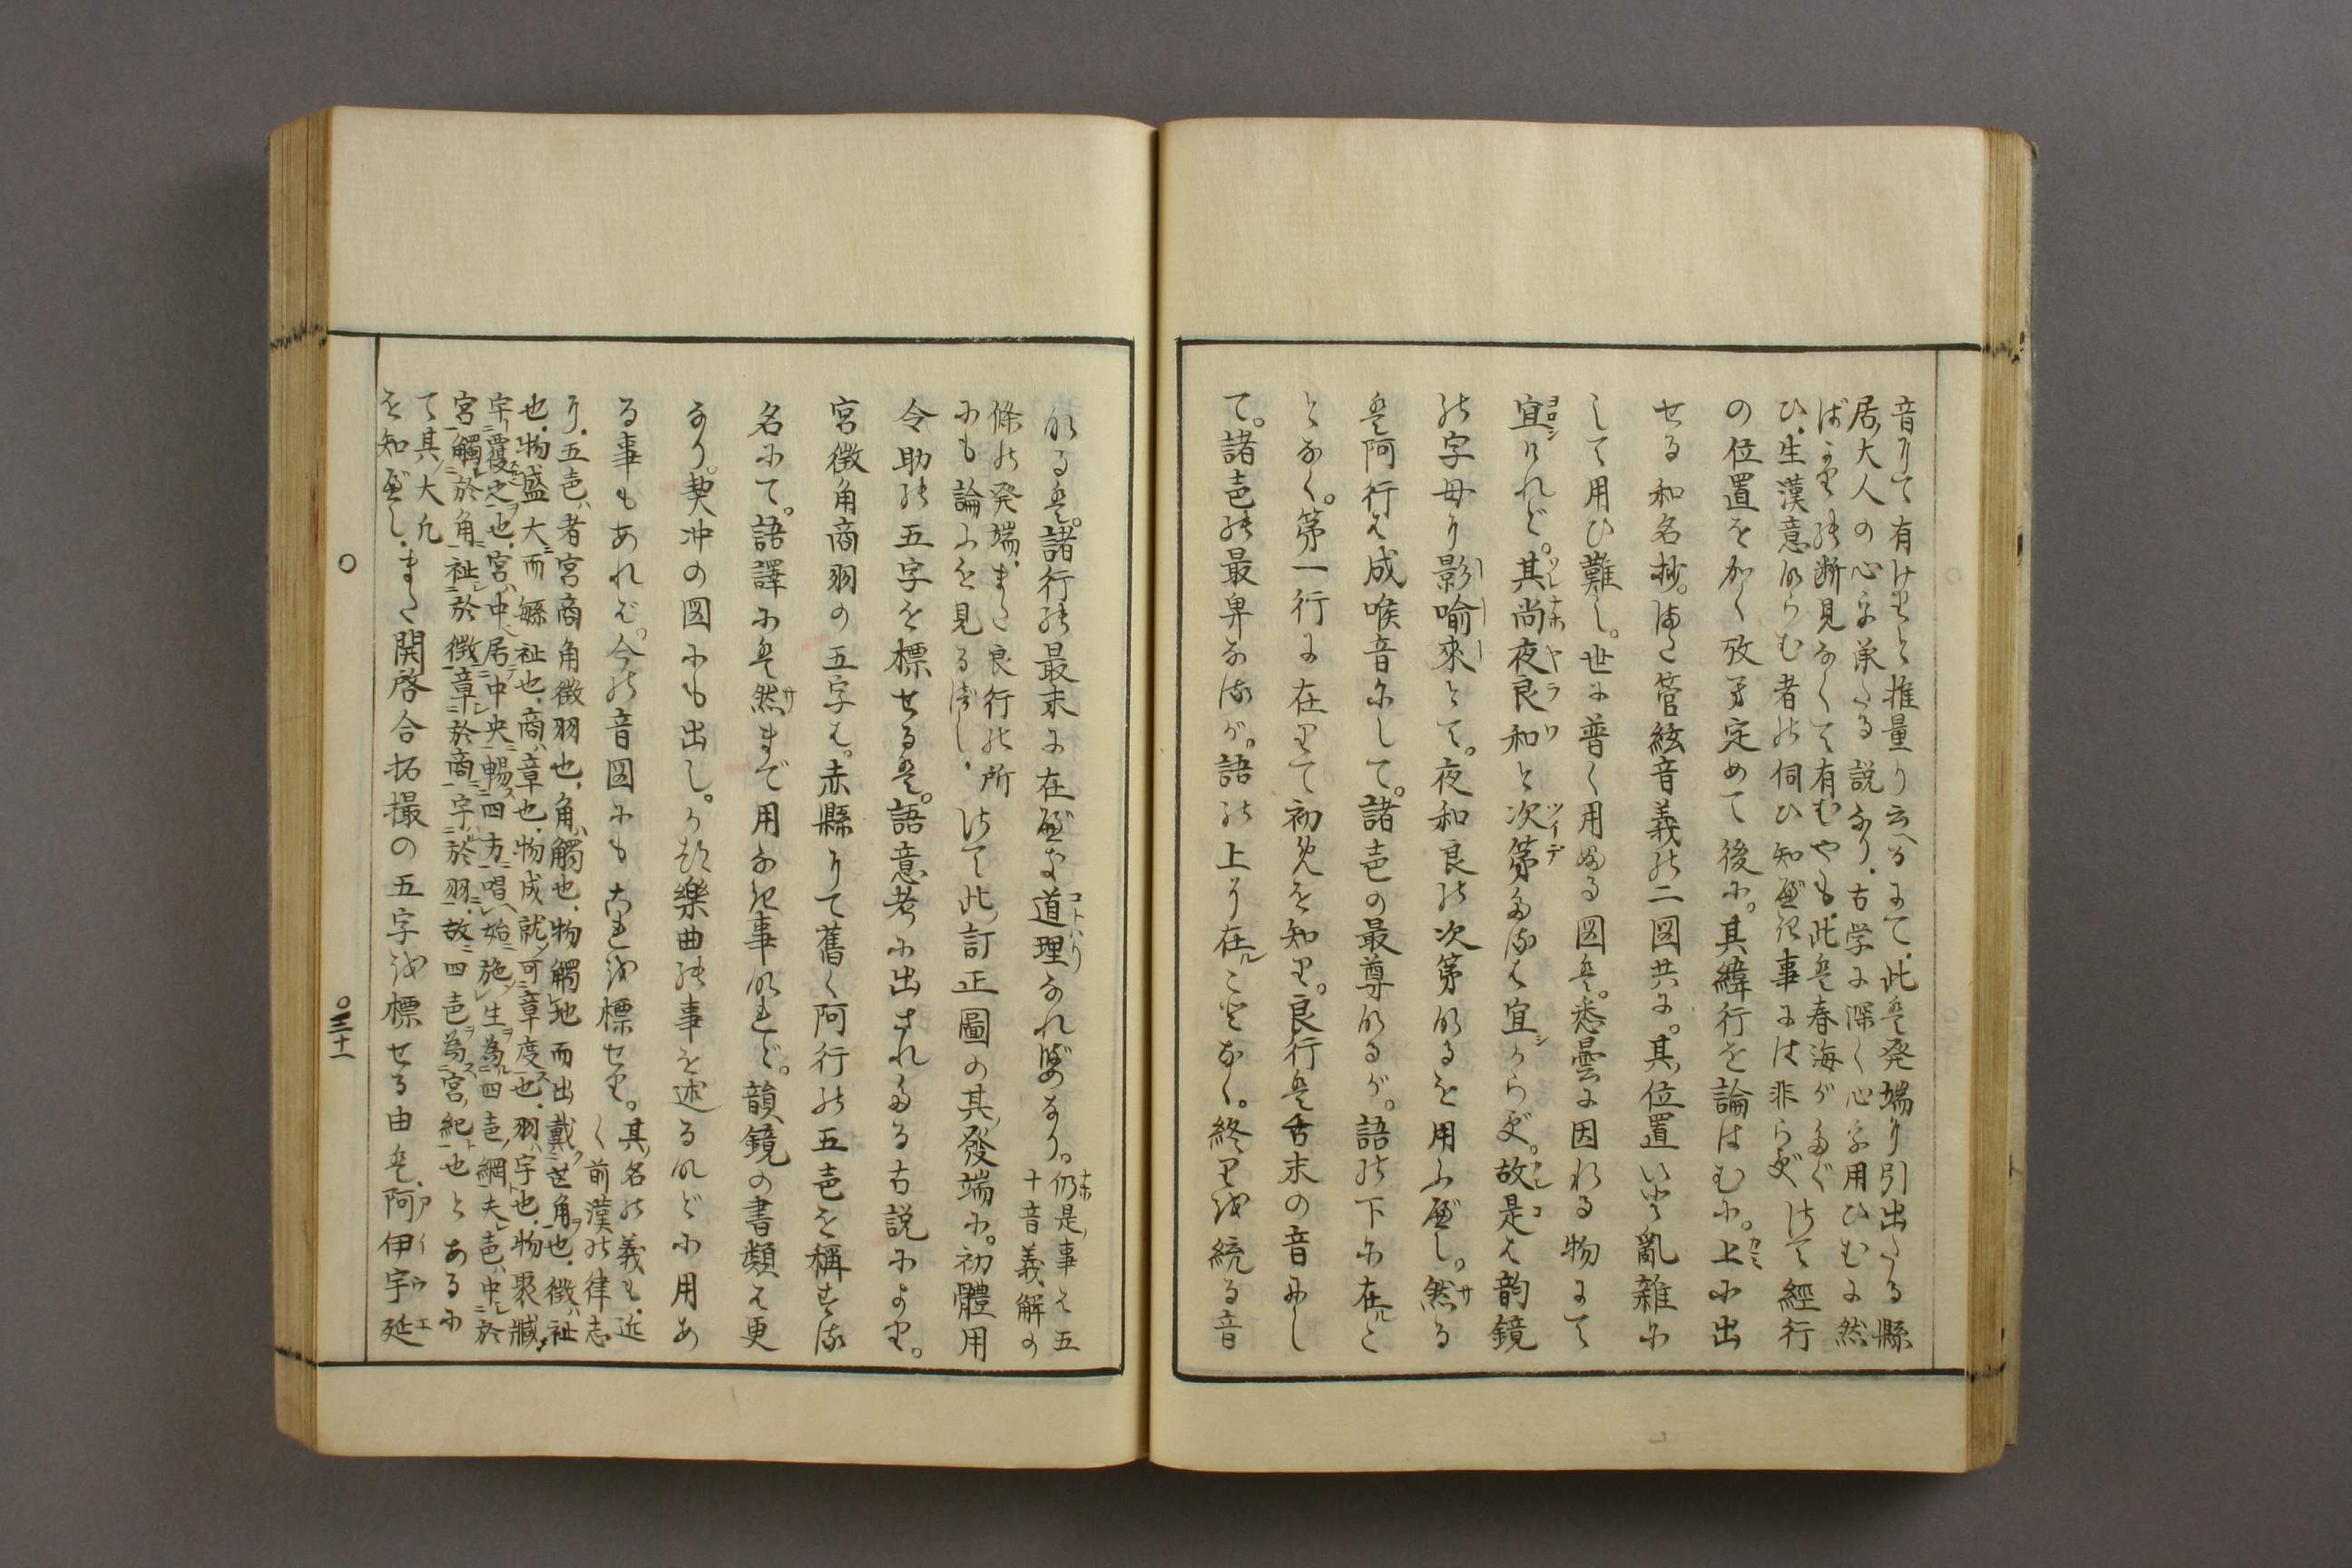 音にて有けむと推量り云へるにて、此は発端に引出たる縣
居ノ大人の心を承たる説なり、古学に深く心を用ひむに然
ばかりの断見なくて有むやも、此は春海がたぐ
ひ、生漢意ならむ者の伺ひ知べき事には非らず
さて經行
の位置をかく攷ヘ定めて後に。其緯行を論はむに。上に出
せる和名抄。また管絃音義の二図共に。其ノ位置いと亂雜に
して用ひ難し。世に普く用ふる図は。悉曇に因れる物にて
宜けれど。其尚夜良和と次第たるは宜からず。故是は韵鏡
の字母に影喻來とて。夜和良の次第なるを用ふべし。然る
は阿行は成喉音にして。諸声の最尊なるが。語の下に在ルこ
となく。第一行に在りて初免を知り。良行は舌末の音にし
て。諸声の最卑なるが。語の上に在ルことなく。終りを統る音
なるは。諸行の最末に在べき道理なればなり。
仍是ノ事は五
十音義解の
條の発端、また良行の所
にも論ふを見るべし、
さて此ノ訂正圖の其ノ發端に。初體用
令助の五字を標せるは。語意考に出されたる古説により。
宮徴角商羽の五字は。赤縣にて舊く阿行の五声を稱する
名にて。語譯には然まで用なき事なれど。韻鏡の書類は更
なり。契沖の図にも出し。かつ樂曲の事を述るなどに用あ
る事もあれば。今の音図にもこれを標せり。
其ノ名の義も、近
く前漢の律志
に、五声ハ者宮商角徴羽也、角ハ觸也、物觸地而出戴芒角也、徴ハ祉
也、物盛大而繇祉也、商ハ章也、物成就可章度也、羽ハ宇也、物聚臧
宇覆之也、宮ハ中居中央暢四方唱始施生為四声綱夫声中於
宮觸於角祉於徴章於商宇於羽故四声為宮紀也とあるに
て其ノ大凡
を知べし、
また開啓合拓撮の五字を標せる由は、阿伊宇延
○三十一